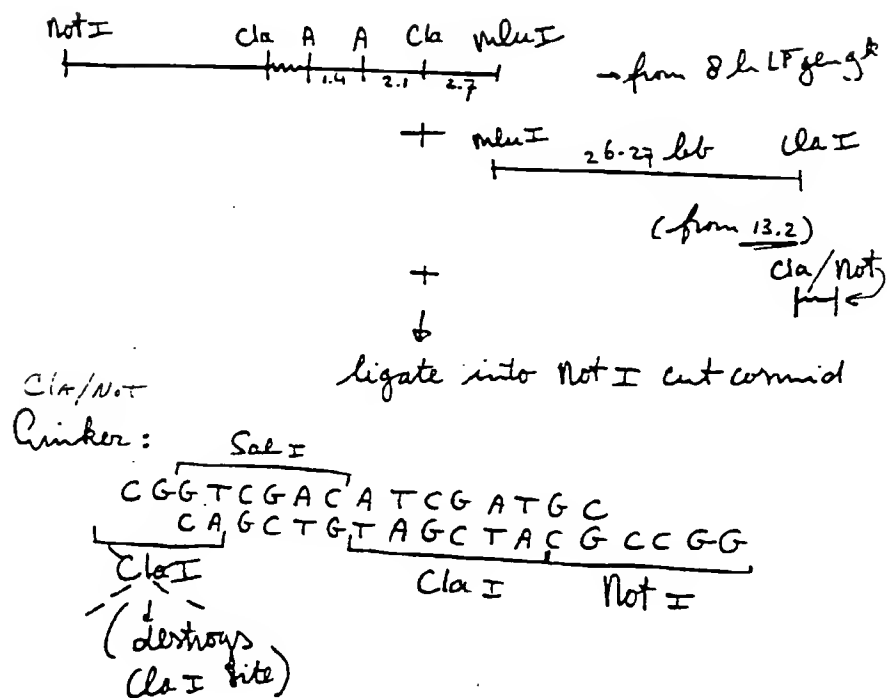 Not I Cla A A Cla Mlu I
1.4 2.1 2.7 → from 8
+ Mlu I 26-27 kb Cla I
(from 13.2)
Cla/Not
+
ligate into Not I cut cosmid
Cla/Not
Linker:
Sal I
C G G T C G A C A T C G A T G C
C A G C T G T A G C T A C G C C G G
Cla I Cla I Not I
(destroys
Cla I site)